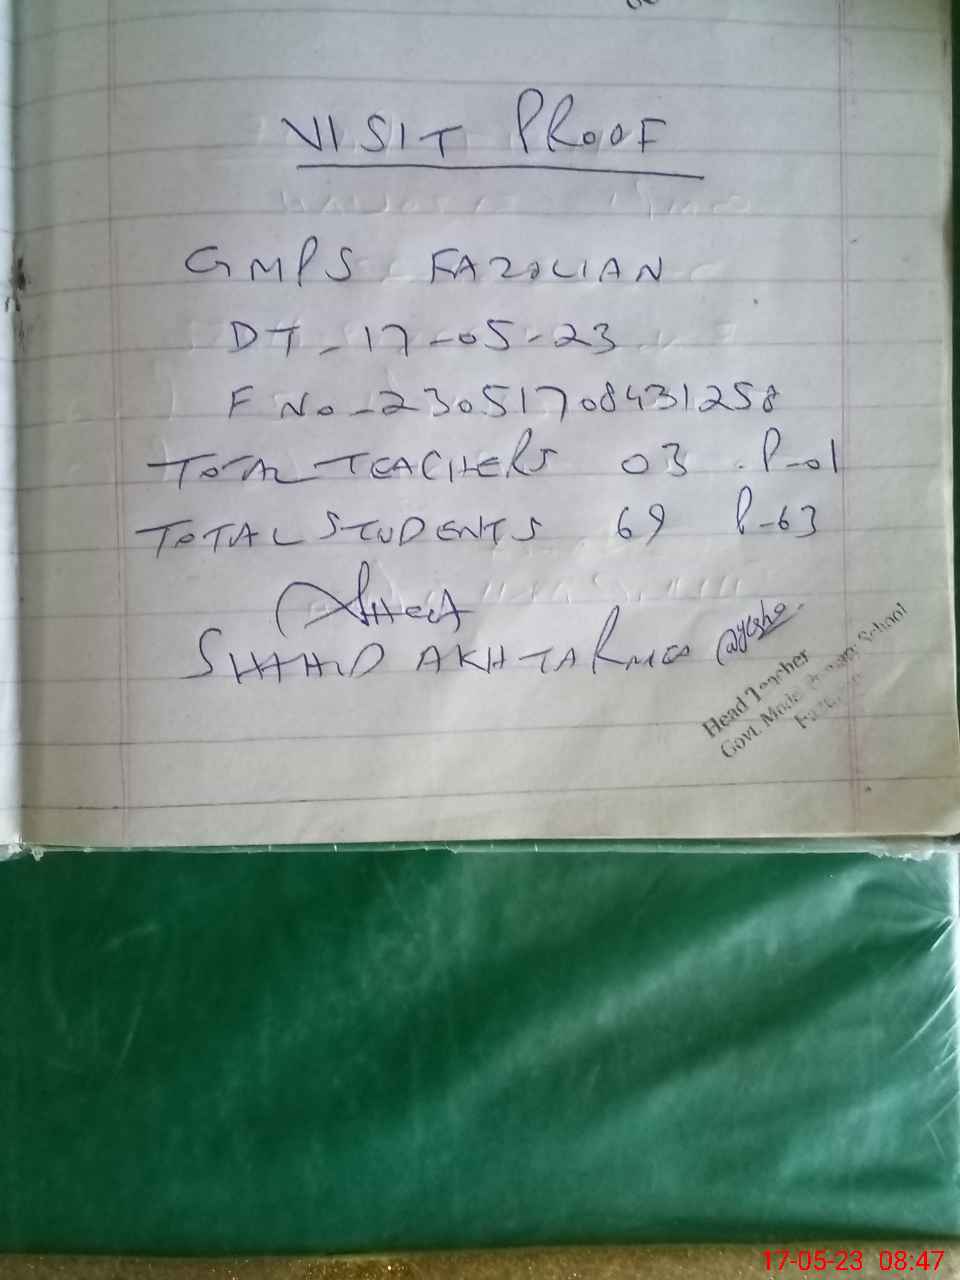 VISIT PROOF
GMPS FAZALIAN
DT - 17-05-23
F No - 23051708431258
TOTAL TEACHERS 03 P-01
TOTAL STUDENTS 69 P-63
SHAHID AKHTAR MEA
Head Teacher
Govt. Model Primary School
17-05-23 08:47